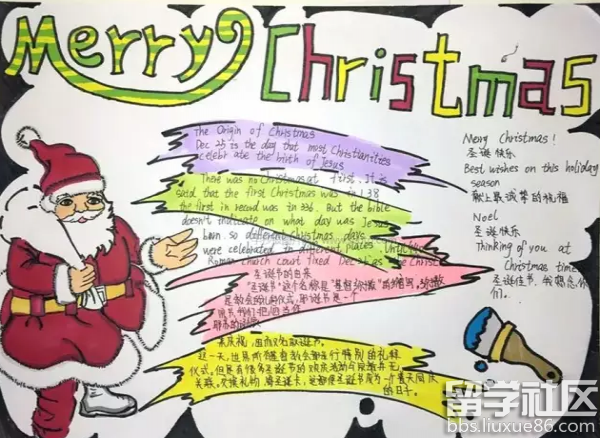 Merry Christmas
The Origin of Christmas
Dec 25 is the day that most Christianities
celebr ate the birth of Jesus
There was no Christmas at first. It is
said that the first Christmas was in 138
the first in record was in 336. But the bible
doesn't indicate on what day was Jesus
born so different Christmas days
were celebrated in different plates. Until
Roman church court fixed Dec 25 as the Christ
圣诞节的由来
"圣诞节"这个名称是"基督弥撒"的缩写。弥撒
是教会的礼拜仪式。耶诞节是一个
们把它当作
耶
来庆祝,因而又名耶诞节。
这一天,世界所有基督教会都举行特别的礼拜
仪式。但是有很多圣诞节的欢庆活动与宗教并无
关联。交换礼物,寄圣诞卡,这都使圣诞节成为一个普天同庆
的日子。
Merry Christmas!
圣诞快乐
Best wishes on this holiday
season
献上最诚挚的祝福
Noel
圣诞快乐
Thinking of you at
Christmas time
圣诞佳节,我想念你
们。
留学社区
bbs.liuxue86.com